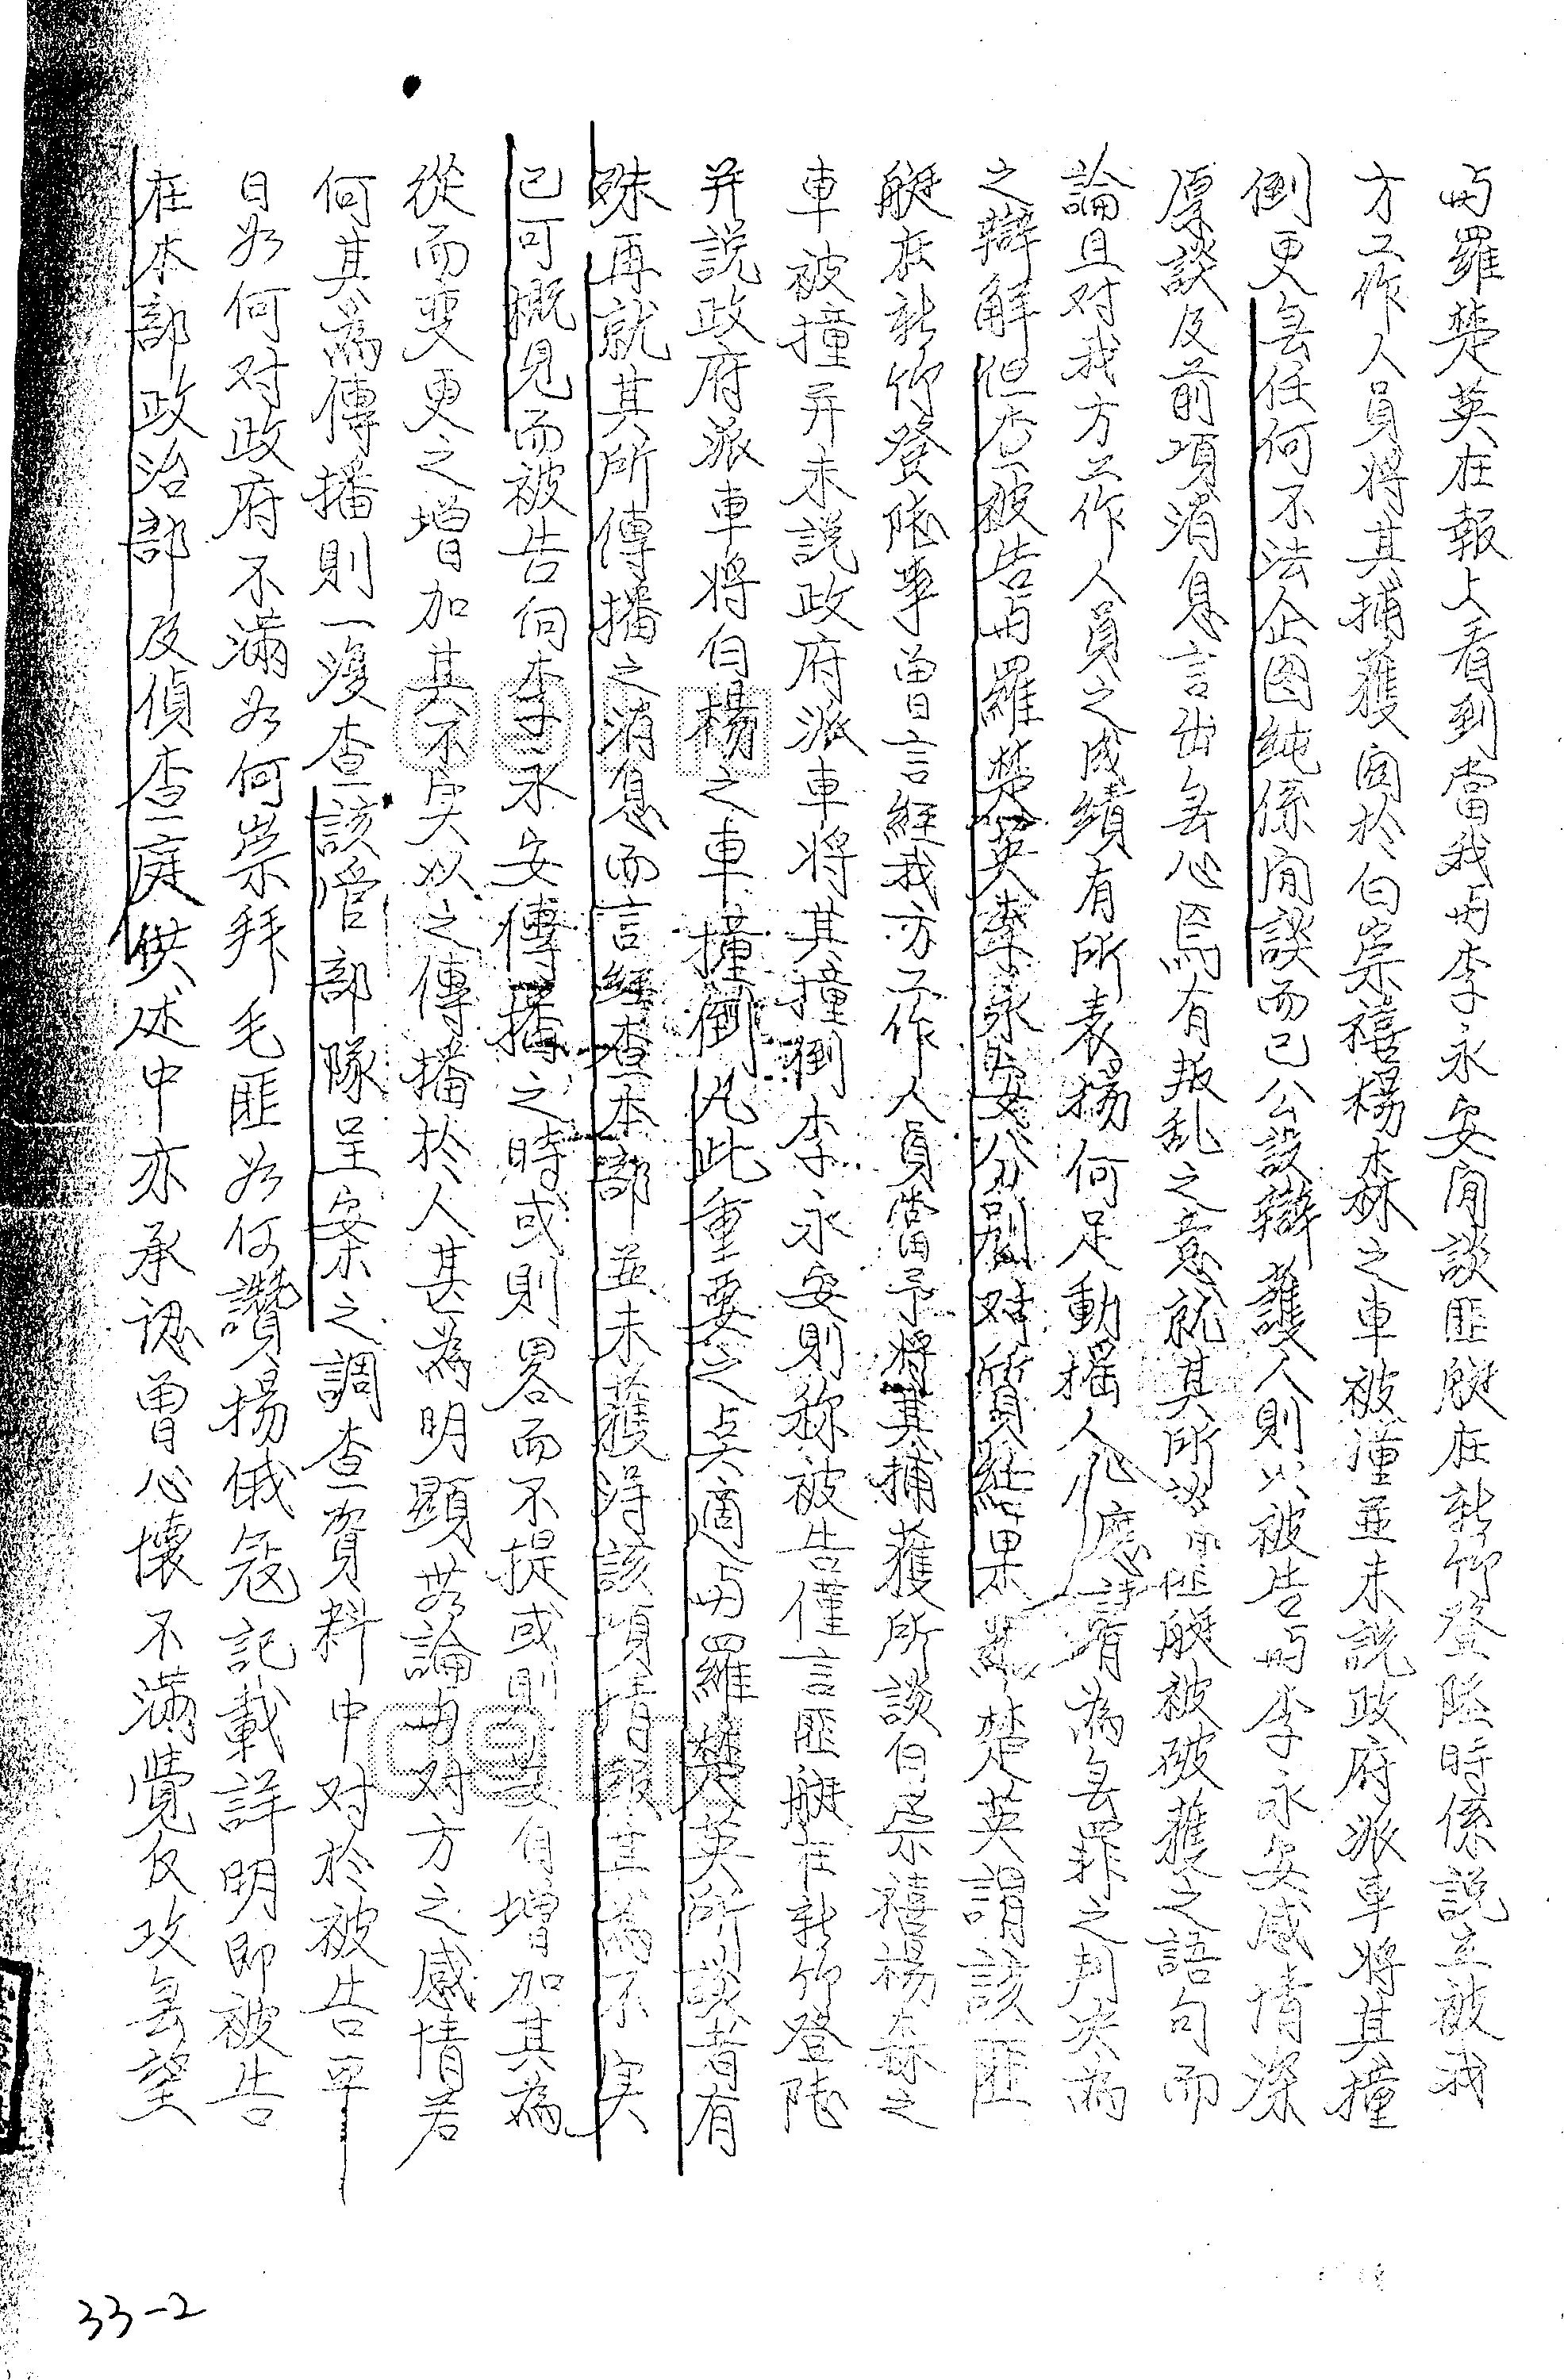 与羅楚英在報上看到當我与李永安閒談匪艇在新竹登陸時係説立被我
方工作人員將其捕獲関於白崇禧楊森之車被撞並未説政府派車將其撞
倒更无任何不法企図純係閒談而已公設辯護人則以被告与李永安感情深
厚談及前項消息言出無心焉有叛乱之意就其所談匪艇被破獲之語句而
論且对我方工作人員之成績有所表揚何足動搖人心應請為无罪之判决為
之辯解但查被告与羅楚英李永安分别对質結果羅楚英謂該匪
艇在新竹登陸事曽言經我方工作人員當予將其捕獲所談白崇禧楊森之
車被撞并未説政府派車將其撞倒李永安則称被告僅言匪艇在新竹登陸
并説政府派車將白楊之車撞倒凡此重要之点適与羅楚英所說者有
殊再就其所傳播之消息而言經查本部並未獲得該項情報其為不实
已可概見而被告向李永安傳播之時或則畧而不提或則有增加其為
從而变更之增加其不实以之傳播於人甚為明顯若論与对方之感情若
何其為傳播則一複查該管部隊呈案之調查資料中对於被告平
日如何对政府不滿如何崇拜毛匪如何讚揚俄寇記載詳明即被告
在本部政治部及偵查庭供述中亦承認曽心懷不滿覺反攻无望
33-2